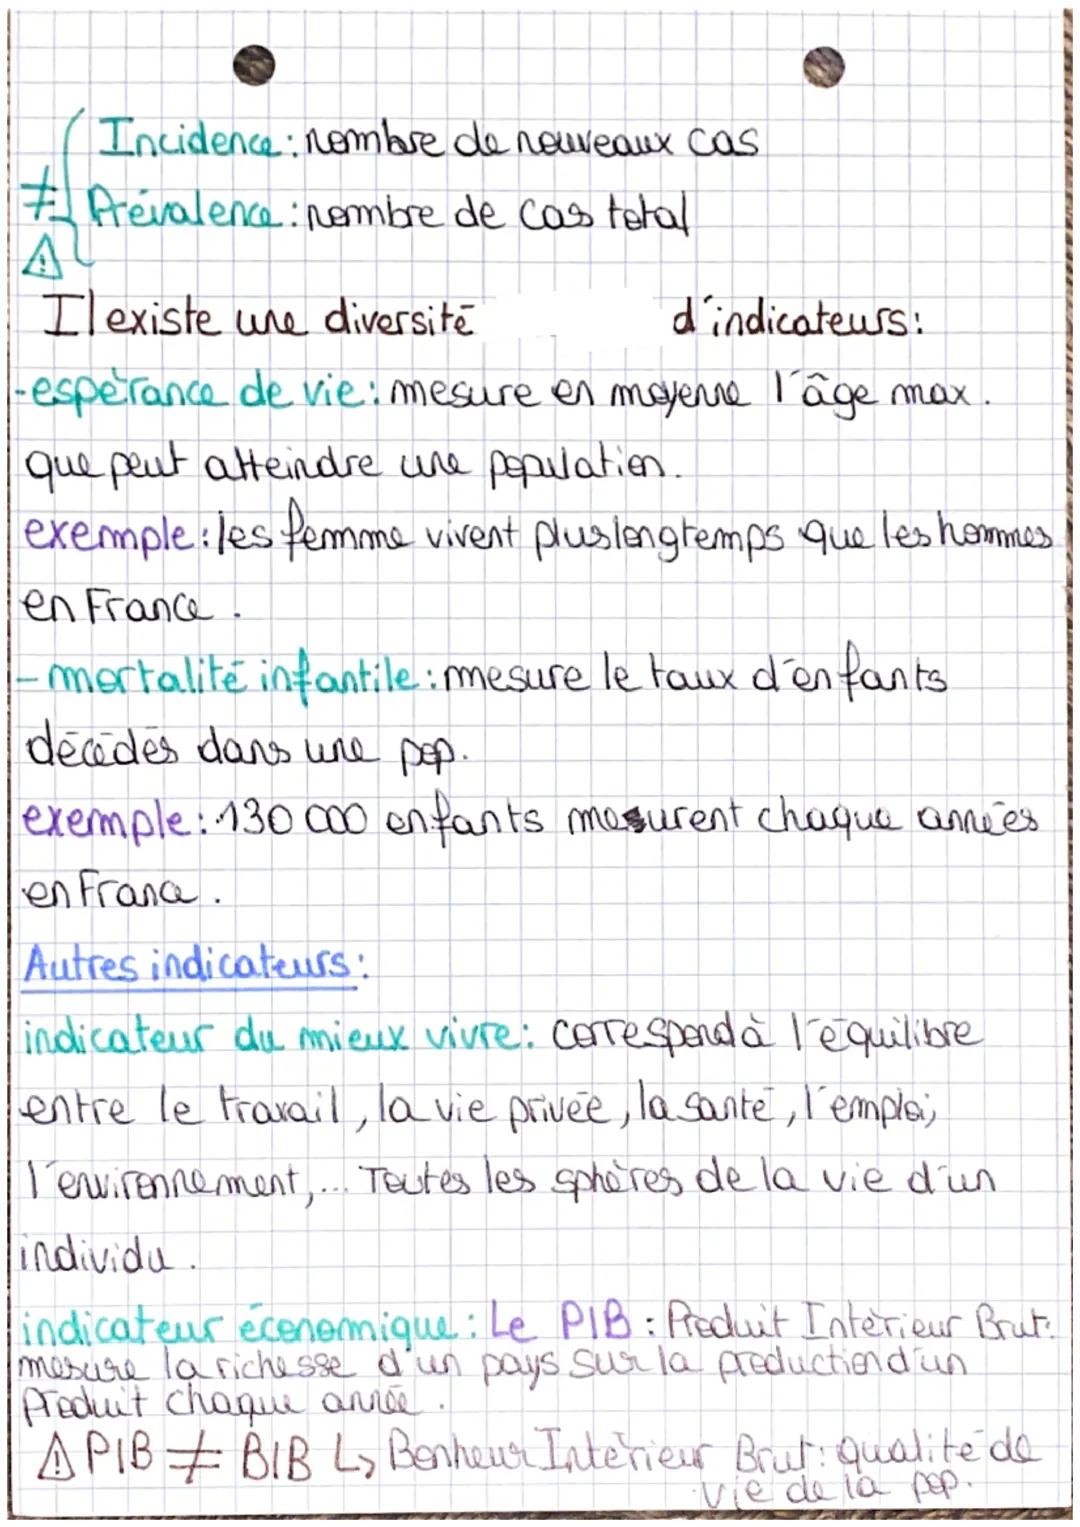 Incidence : nombre de nouveaux cas
≠ Prévalence : nombre de cas total
⚠
Il existe une diversité d'indicateurs :
- espérance de vie : mesure en moyenne l'âge max.
que peut atteindre une population.
exemple : les femme vivent plus longtemps que les hommes
en France.
- mortalité infantile : mesure le taux d'enfants
décédés dans une pop.
exemple : 130 000 enfants mesurent chaque années
en France.
Autres indicateurs :
indicateur du mieux vivre : correspond à l'équilibre
entre le travail, la vie privée, la santé, l'emploi,
l'environnement,... Toutes les sphères de la vie d'un
individu.
indicateur économique : Le PIB : Produit Intérieur Brut :
mesure la richesse d'un pays sur la production d'un
Produit chaque année.
⚠ PIB ≠ BIB ↳ Bonheur Intérieur Brut : qualité de
vie de la pop.